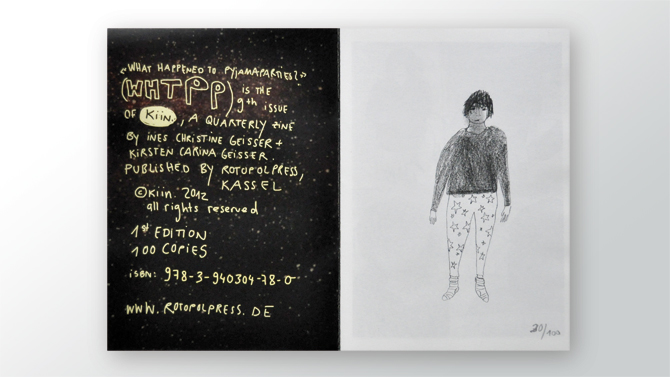 „WHAT HAPPENED TO PYJAMAPARTIES?“
(WHTPP) IS THE
9th ISSUE
OF Kiin., A QUARTERLY ZINE
BY INES CHRISTINE GEISSER +
KIRSTEN CARINA GEISSER.
PUBLISHED BY ROTOPOLPRESS,
KASSEL
©Kiin. 2012
all rights reserved
1st EDITION
100 COPIES
ISBN: 978-3-940304-78-0
WWW.ROTOPOLPRESS.DE
20/100